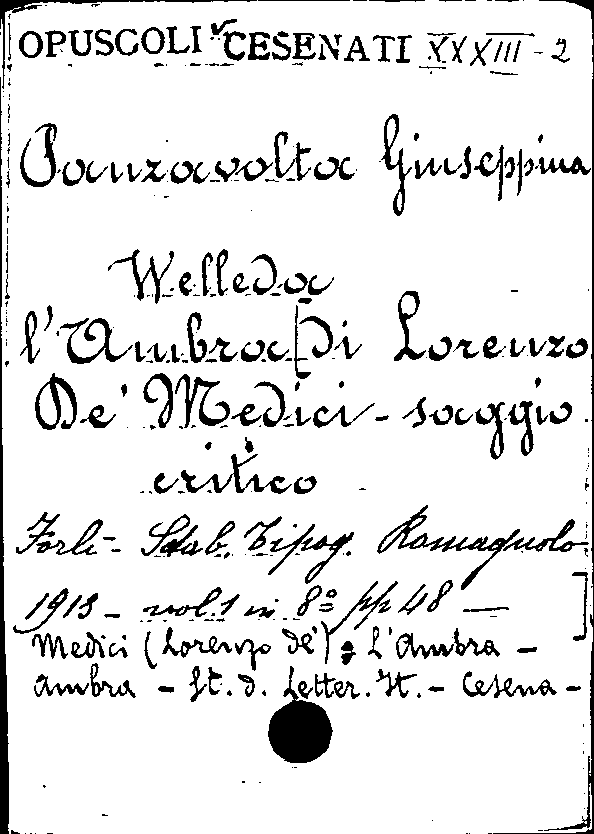 OPUSCOLI CESENATI XXXIII - 2
Panzavolta Giuseppina
Welleda
l'Ambra [di Lorenzo
De' Medici - saggio
critico
Forlì - Stab. Tipog. Romagnolo
1913 - vol. 1 in 8º pp 48 — ]
Medici (Lorenzo de') : L'Ambra -
Ambra - St. d. Letter. It. - Cesena -